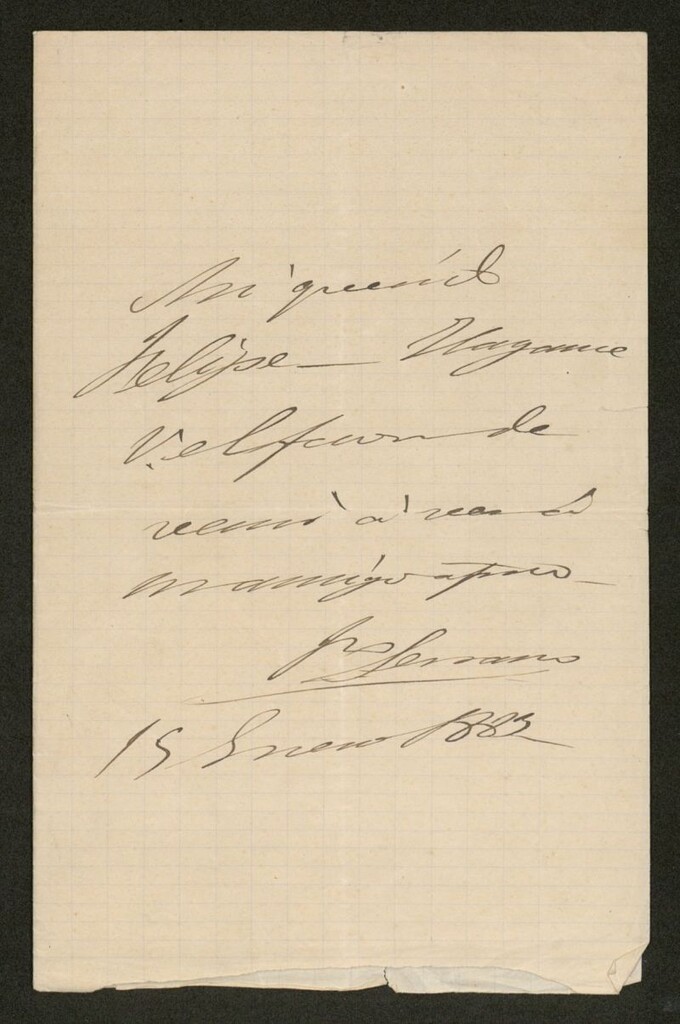 Mi querido
Felipe Hagame
V. el favor de
venir á ver á
su amigo afmo
Fro Serrano
15 Enero 1883